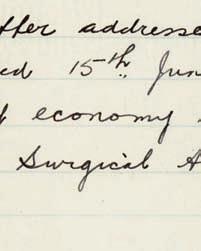 offer addresse
ed 15th Jun
of economy
Surgical A